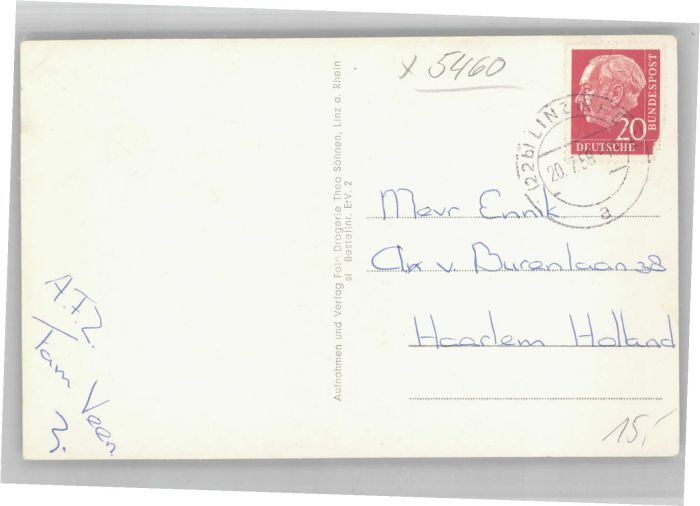 x 5460
20
DEUTSCHE
BUNDESPOST
(22b) LINZ
20.7.58
a
Aufnahmen und Verlag Foto Drogerie Theo Söhnen, Linz a. Rhein
si Bestellnr. E.V. 2
Mevr Ennik
v. Burenlaan 38
Haarlem Holland
A.F.Z.
Fam Veen
15,-